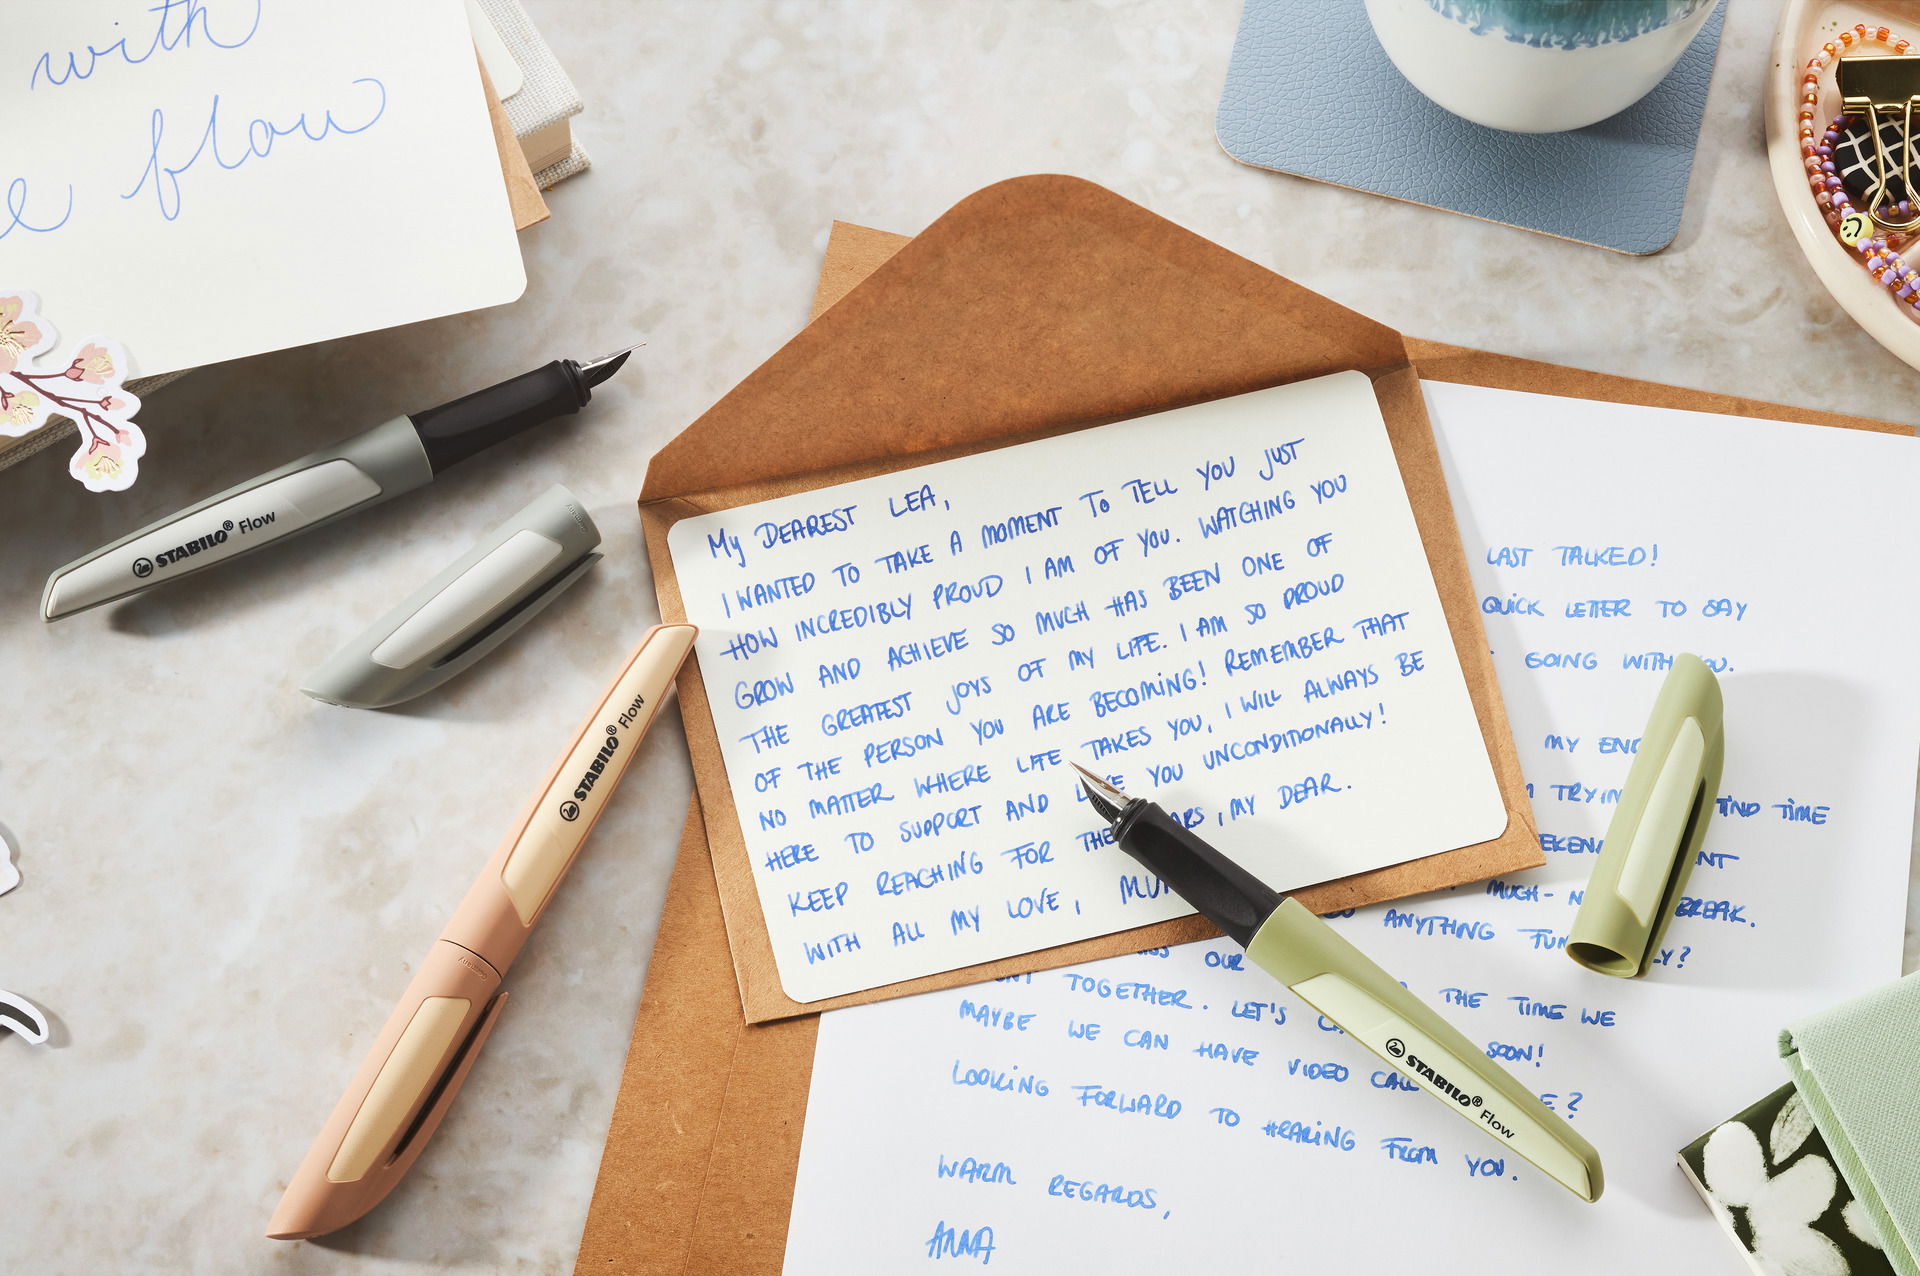 with
e flow
STABILO® Flow
Germany
STABILO® Flow
Germany
My DEAREST LEA,
I WANTED TO TAKE A MOMENT TO TELL YOU JUST
HOW INCREDIBLY PROUD I AM OF YOU. WATCHING YOU
GROW AND ACHIEVE SO MUCH HAS BEEN ONE OF
THE GREATEST JOYS OF MY LIFE. I AM SO PROUD
OF THE PERSON YOU ARE BECOMING! REMEMBER THAT
NO MATTER WHERE LIFE TAKES YOU, I WILL ALWAYS BE
HERE TO SUPPORT AND YOU UNCONDITIONALLY!
KEEP REACHING FOR THE ARS, MY DEAR.
WITH ALL MY LOVE, MU
STABILO® Flow
LAST TALKED!
QUICK LETTER TO SAY
GOING WITH OU.
MY EN
TRYIN FIND TIME
EKEN NT
MUCH- N BREAK.
ANYTHING FUN LY?
OUR
TOGETHER. LET'S THE TIME WE
MAYBE WE CAN HAVE VIDEO CALL SOON!
LOOKING FORWARD TO HEARING FROM YOU. E?
WARM REGARDS,
ANNA